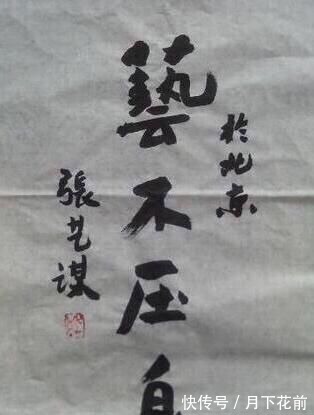 於北京
藝不压身
張艺谋
快传号 / 月下花前